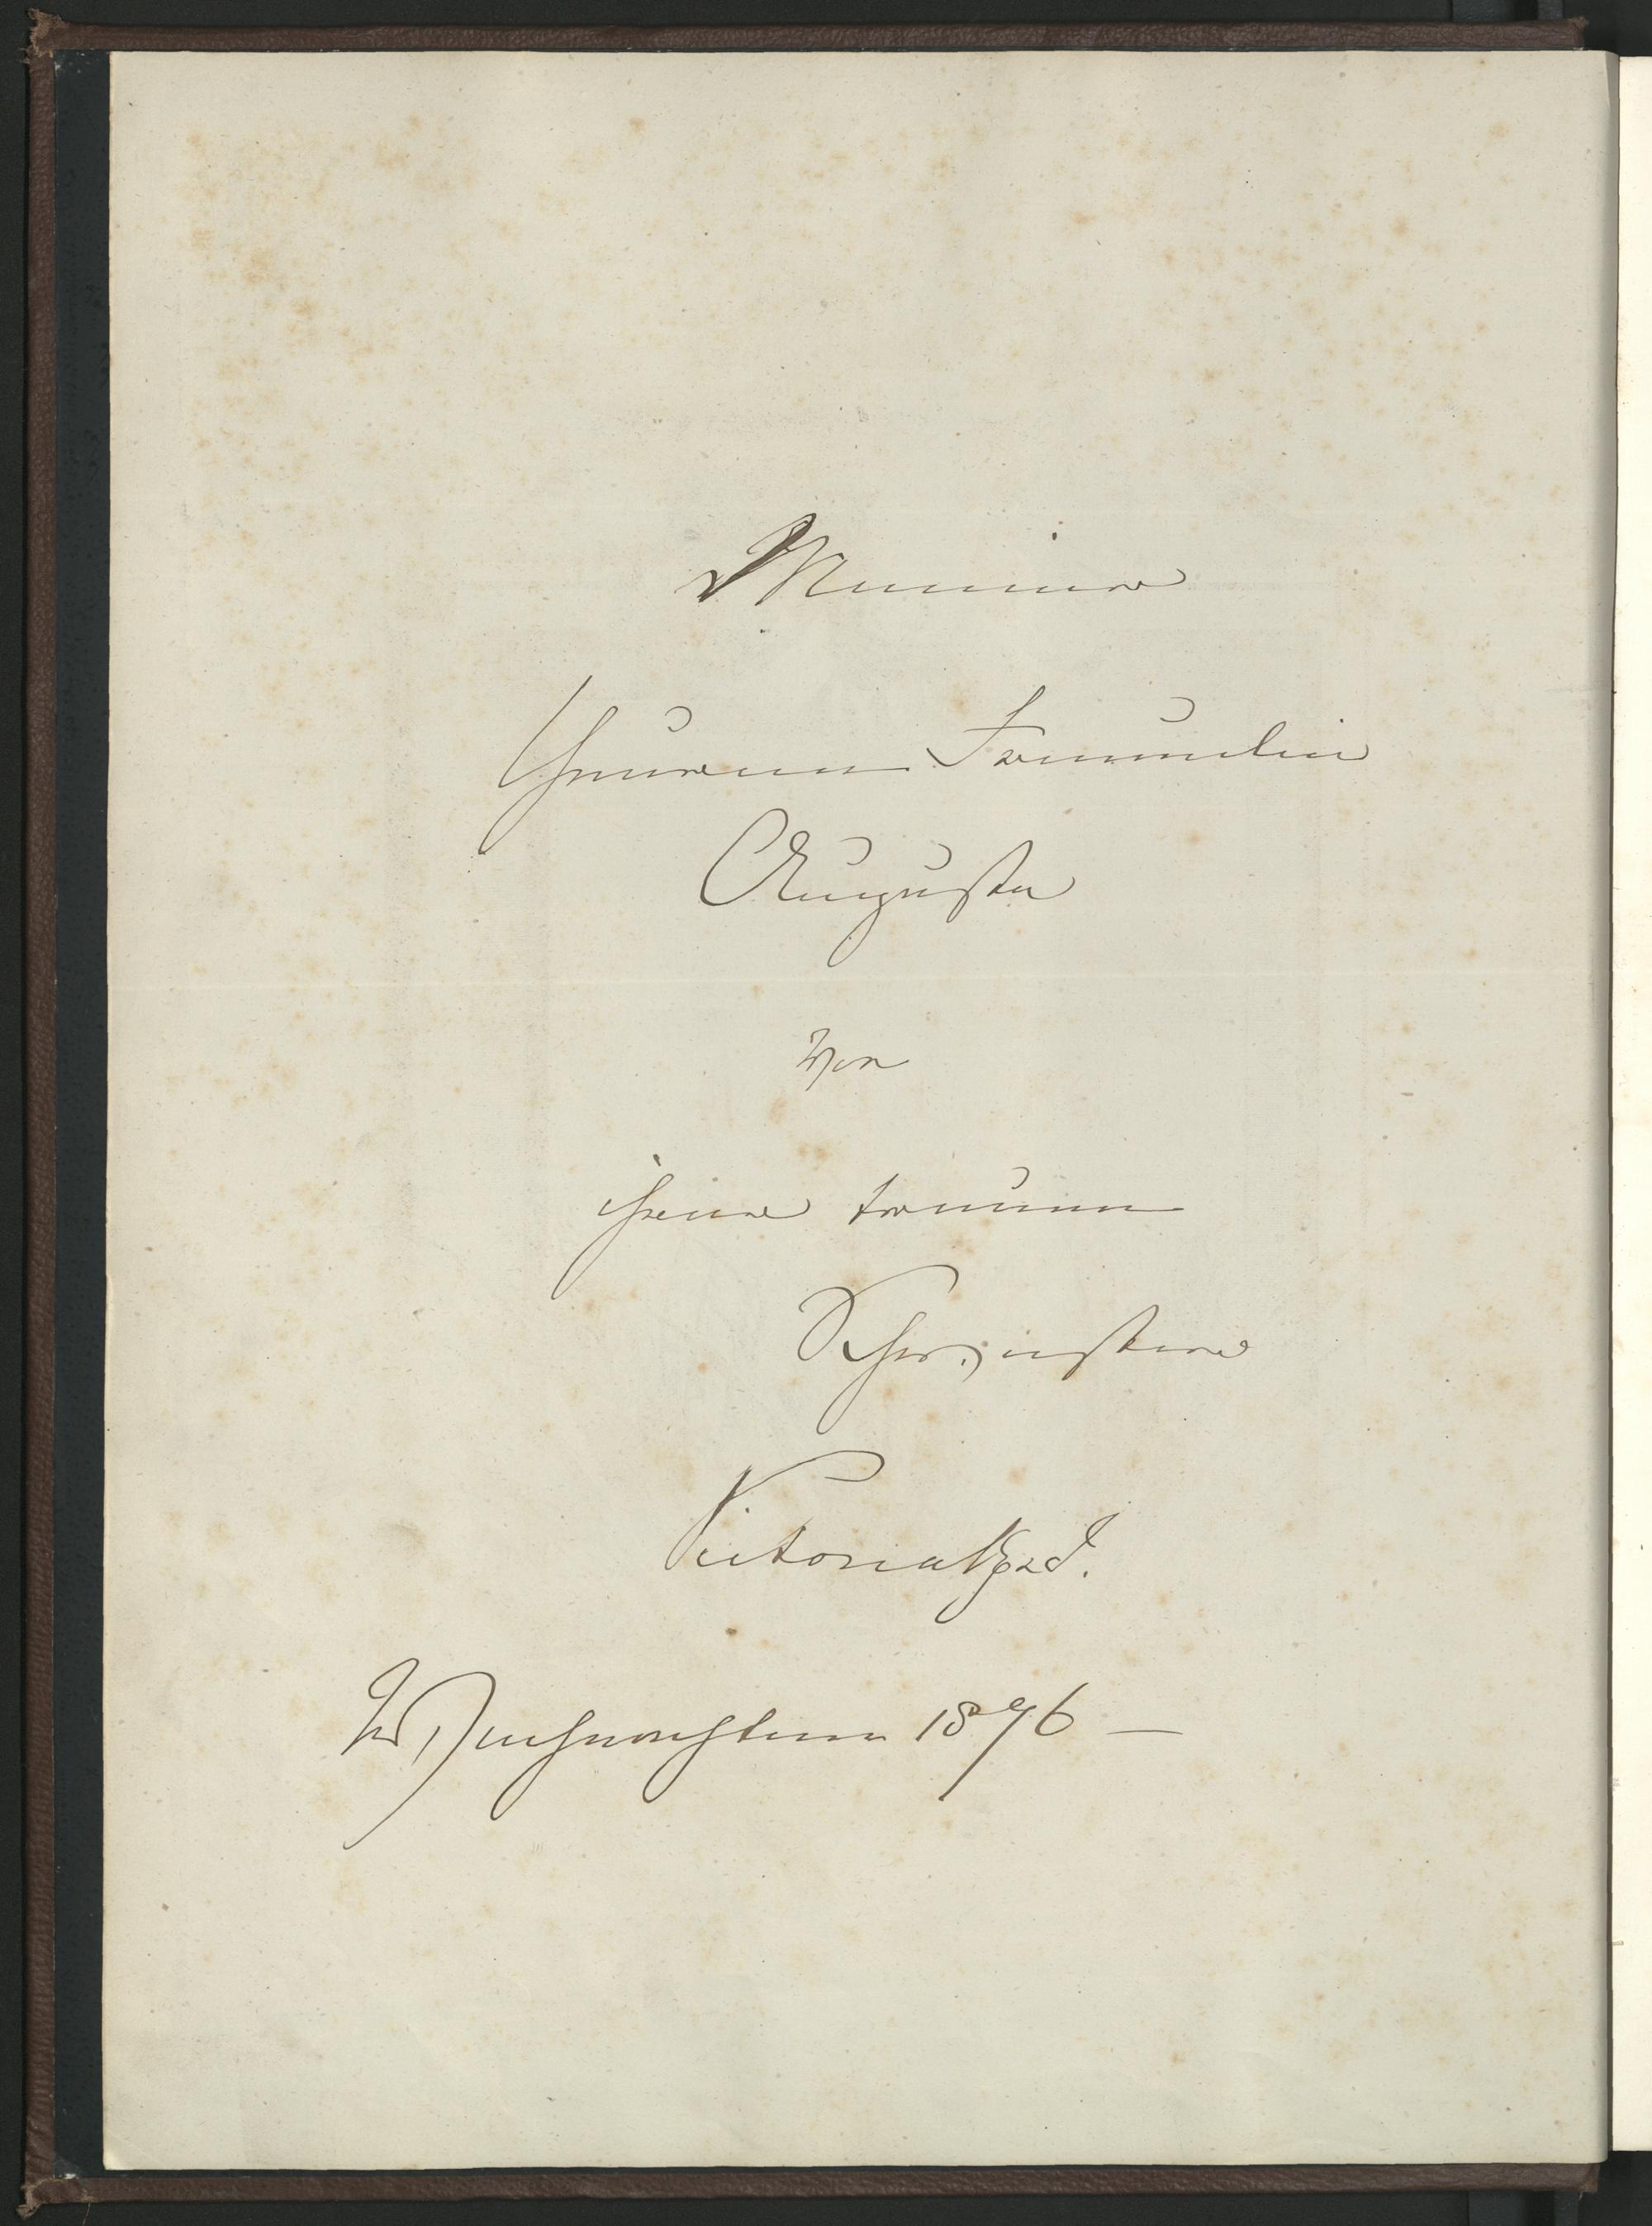 Meiner
theuren Freundin
Augusta
von
ihrer treuen
Schwester
Victoria Kgzd.
Weihnachten 1876 —